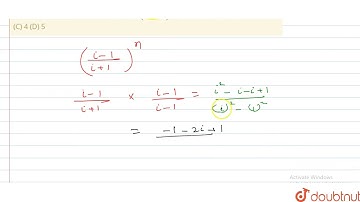 (C) 4 (D) 5
(i-1 / i+1)^n
i-1 / i+1 × i-1 / i-1 = i² - i - i + 1 / (i)² - (1)²
= -1 - 2i + 1
Activate Windows
doubtnut